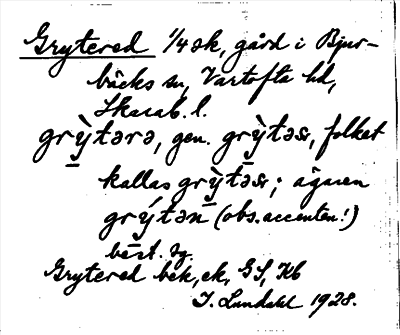 Grytered 1/4 ək, gård i Bjur-
bäcks sn, Vartofta hd,
Skarab. l.
grỳtərə, gen. grỳtəs, folket
kallas grỳtəs; ägaren
grýtən (obs. accenten!)
best. sg.
Grytered bek, ek, GS, Kb
I. Lundahl 1928.